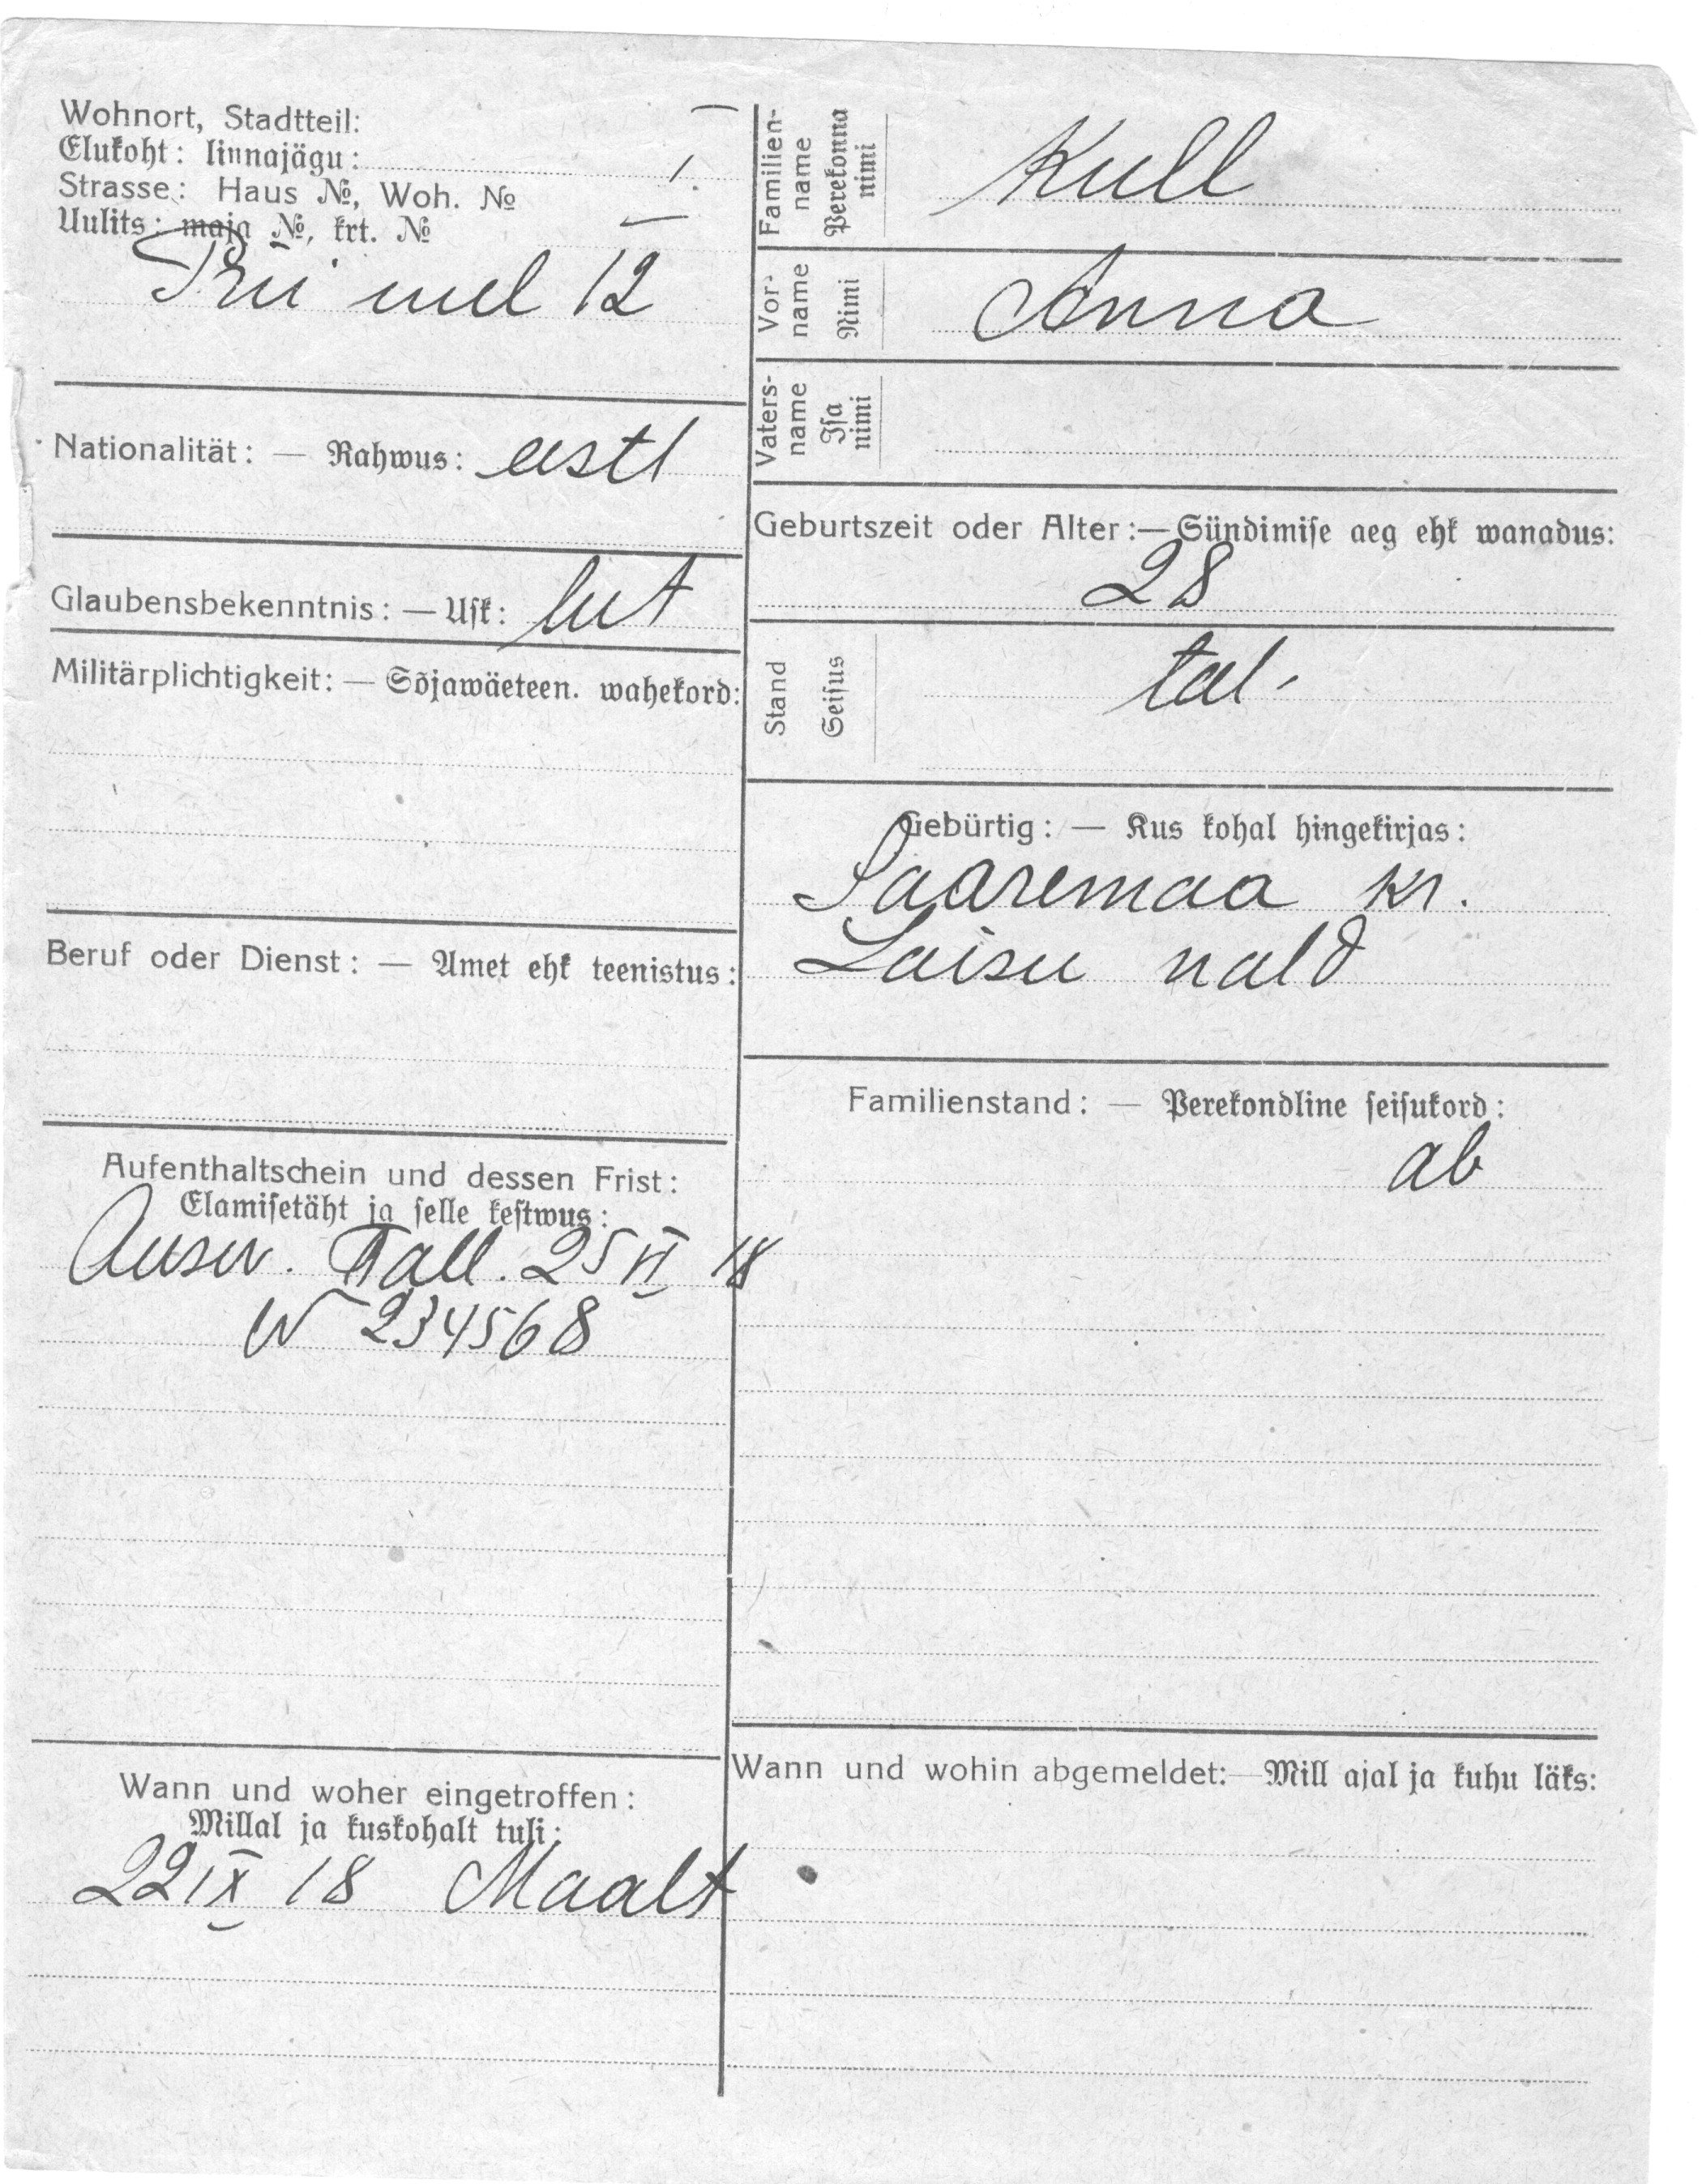 Wohnort, Stadtteil:
Elukoht: linnajägu: I.
Strasse: Haus №, Woh. №
Uulits: maja №, krt. №
12
Nationalität: — Rahwus: eestl
Glaubensbekenntnis: — Usk: lut
Militärplichtigkeit: — Sõjawäeteen. wahekord:
Beruf oder Dienst: — Amet ehk teenistus:
Aufenthaltschein und dessen Frist:
Elamisetäht ja selle kestwus:
Ausw. Tall. 25 VI 18
N 234568
Wann und woher eingetroffen:
Millal ja kuskohalt tuli:
22 IX 18 Maalt
Familien-
name
Perekonna
nimi
Kull
Vor-
name
Nimi
Anna
Vaters-
name
Isa
nimi
Geburtszeit oder Alter:—Sündimise aeg ehk wanadus:
28
Stand
Seisus
tal.
Gebürtig: — Kus kohal hingekirjas:
Saaremaa kr.
vald
Familienstand: — Perekondline seisukord:
ab
Wann und wohin abgemeldet:—Mill ajal ja kuhu läks: